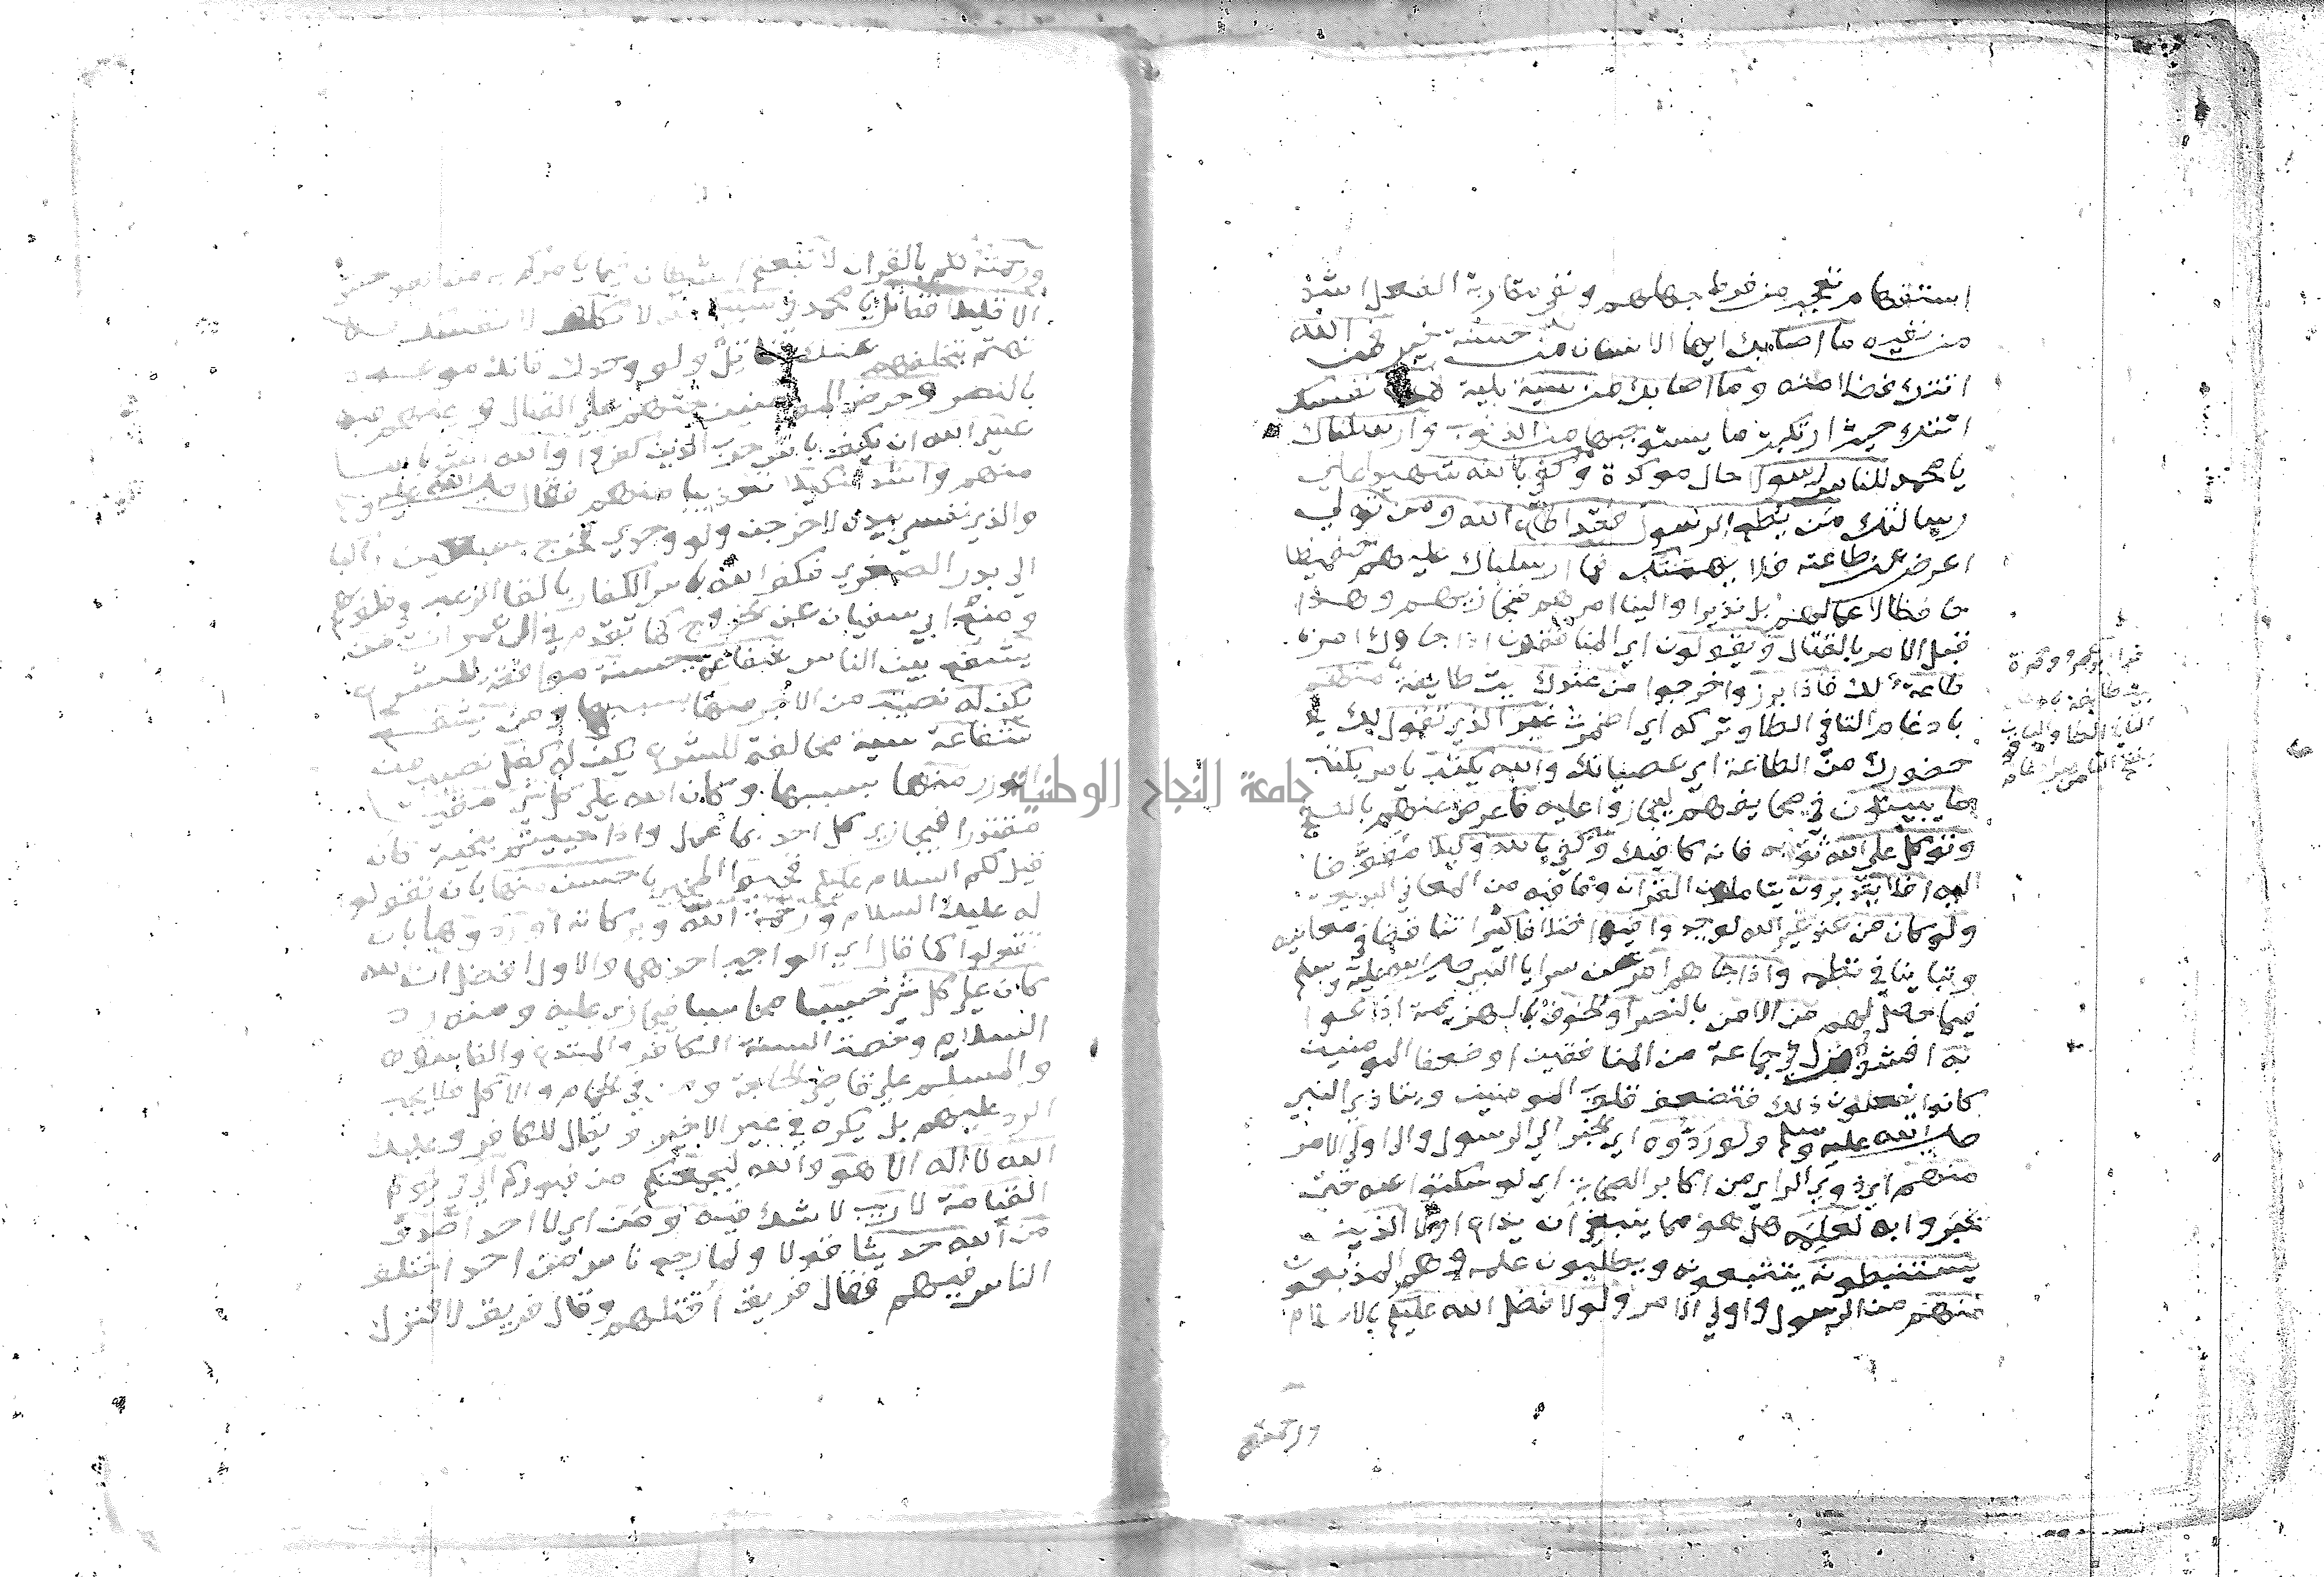 استفهام تعجب من فرط جهلهم ونفي مقاربة الفعل اشد
من نفيه ما اصابك ايها الانسان من حسنة خير فمن الله
اتتك فضلا منه وما اصابك من سيية بلية فمن نفسك
اتتك حيث ارتكبت ما يستوجبها من الذنوب وارسلناك
يا محمد للناس رسولا حال موكدة وكفي بالله شهيدا علي
رسالتك من يطع الرسول فقد اطاع الله ومن تولي
اعرض عن طاعته فلا يهمنك فما ارسلناك عليهم حفيظا
حافظا لاعمالهم بل نذيرا والينا امرهم فنجازيهم وهذا
قبل الامر بالقتال ويقولون اي المنافقون اذا جاوك امرنا
طاعة لك فاذا برزوا خرجوا من عندك بيت طايفة منهم
بادغام التا في الطا وتركه اي اضمرت غير الذي تقول لك في
حضورك من الطاعة اي عصيانك والله يكتب يامر بكتب
ما يبيتون في صحايفهم ليجازوا عليه فاعرض عنهم بالصفح
وتوكل علي الله ثق به فانه كافيك وكفي بالله وكيلا مفوضا
اليه افلا يتدبرون يتاملون القران وما فيه من المعاني البديعة
ولو كان من عند غير الله لوجدوا فيه اختلافا كثيرا تناقضا في معانيه
وتباينا في نظمه واذا جاهم امر عن سرايا النبي صلي الله عليه وسلم
فيما حصل لهم من الامن بالنصر او الخوف بالهزيمة اذاعوا
به افشوه نزل في جماعة من المنافقين او ضعفا المومنين
كانوا يفعلون ذلك فتضعف قلوب المومنين ويتاذي النبي
صلي الله عليه وسلم ولو ردوه اي الخبر الي الرسول والي اولي الامر
منهم اي ذوي الراي من اكابر الصحابة اي لو سكتوا عنه حتي
يخبروا به لعلمه هل هو مما ينبغي ان يذاع او لا الذين
يستنبطونه يتتبعونه ويطلبون علمه وهم المذيعون
منهم من الرسول واولي الامر ولولا فضل الله عليكم بالاسلام
قرا ابو عمرو وحمزة
بيت طايفة بادغام
التا في الطا والباقون
بفتح التا من غير ادغام
ورحمته
ورحمته لكم بالقران لاتبعتم الشيطان فيما يامركم به من الفواحش
الا قليلا فقاتل يا محمد في سبيل الله لا تكلف الا نفسك فلا
تهتم بتخلفهم عنك قاتل ولو وحدك فانك موعود
بالنصر وحرض المومنين حثهم علي القتال ورغبهم فيه
عسي الله ان يكف باس حرب الذين كفروا والله اشد باسا
منهم واشد تنكيلا تعذيبا منهم فقال صلي الله عليه وسلم
والذي نفسي بيده لاخرجن ولو وحدي فخرج بسبعين راكبا
الي بدر الصغري فكف الله باس الكفار بالقا الرعب في قلوبهم
ومنع ابي سفيان عن الخروج كما تقدم في ال عمران من
يشفع بين الناس شفاعة حسنة موافقة للشرع
يكن له نصيب من الاجر منها بسببها ومن يشفع
شفاعة سيية مخالفة للشرع يكن له كفل نصيب من
الوزر منها بسببها وكان الله علي كل شي مقيتا
مقتدرا فيجازي كل احد بما عمل واذا حييتم بتحية كان
قيل لكم السلام عليكم فحيوا المحيي باحسن منها بان تقولوا
له عليك السلام ورحمة الله وبركاته او ردوها بان
تقولوا كما قال اي الواجب احدهما والاول افضل ان الله
كان علي كل شي حسيبا محاسبا فيجازي عليه ومنه رد
السلام وخصت السنة الكافر والمبتدع والفاسق
والمسلم علي قاضي الحاجة ومن في الحمام والاكل فلا يجب
الرد عليهم بل يكره في غير الاخير ويقال للكافر وعليك
الله لا اله الا هو والله ليجمعنكم من قبوركم الي في يوم
القيامة لا ريب لا شك فيه ومن اي لا احد اصدق
من الله حديثا قولا ولما رجع ناس من احد اختلف
الناس فيهم فقال فريق اقتلهم وقال فريق لا فنزل
جامعة النجاح الوطنية